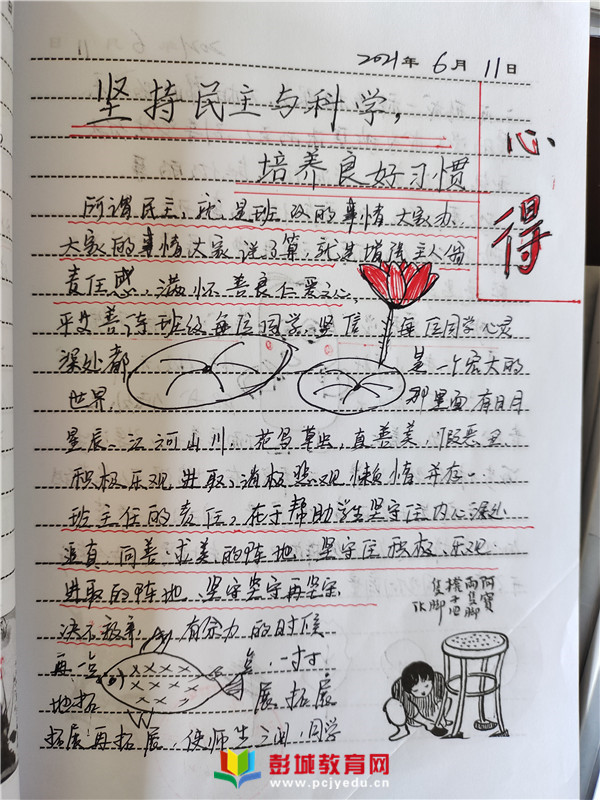 2021年6月11日
坚持民主与科学，
培养良好习惯
心得
所谓民主，就是班级的事情大家办，
大家的事情大家说了算，就是增强主人翁
责任感，满怀善良仁爱之心，
平等善待班级每位同学，坚信 每位同学心灵
深处都 是一个宏大的
世界 那里面有日月
星辰 江河山川 花鸟草虫，真善美，假恶丑
积极乐观进取，消极悲观懒惰并存
班主任的责任，在于帮助学生坚守住内心深处
追真 向善 求美的阵地 坚守住积极 乐观
进取的阵地 坚守坚守再坚守
决不放弃 有余力的时候
再一点 点，一寸寸
地拓 展 拓展
拓展再拓展，使师生之间，同学
阿寶
兩隻腳
櫈十四
隻腳
彭城教育网
www.pcjyedu.cn